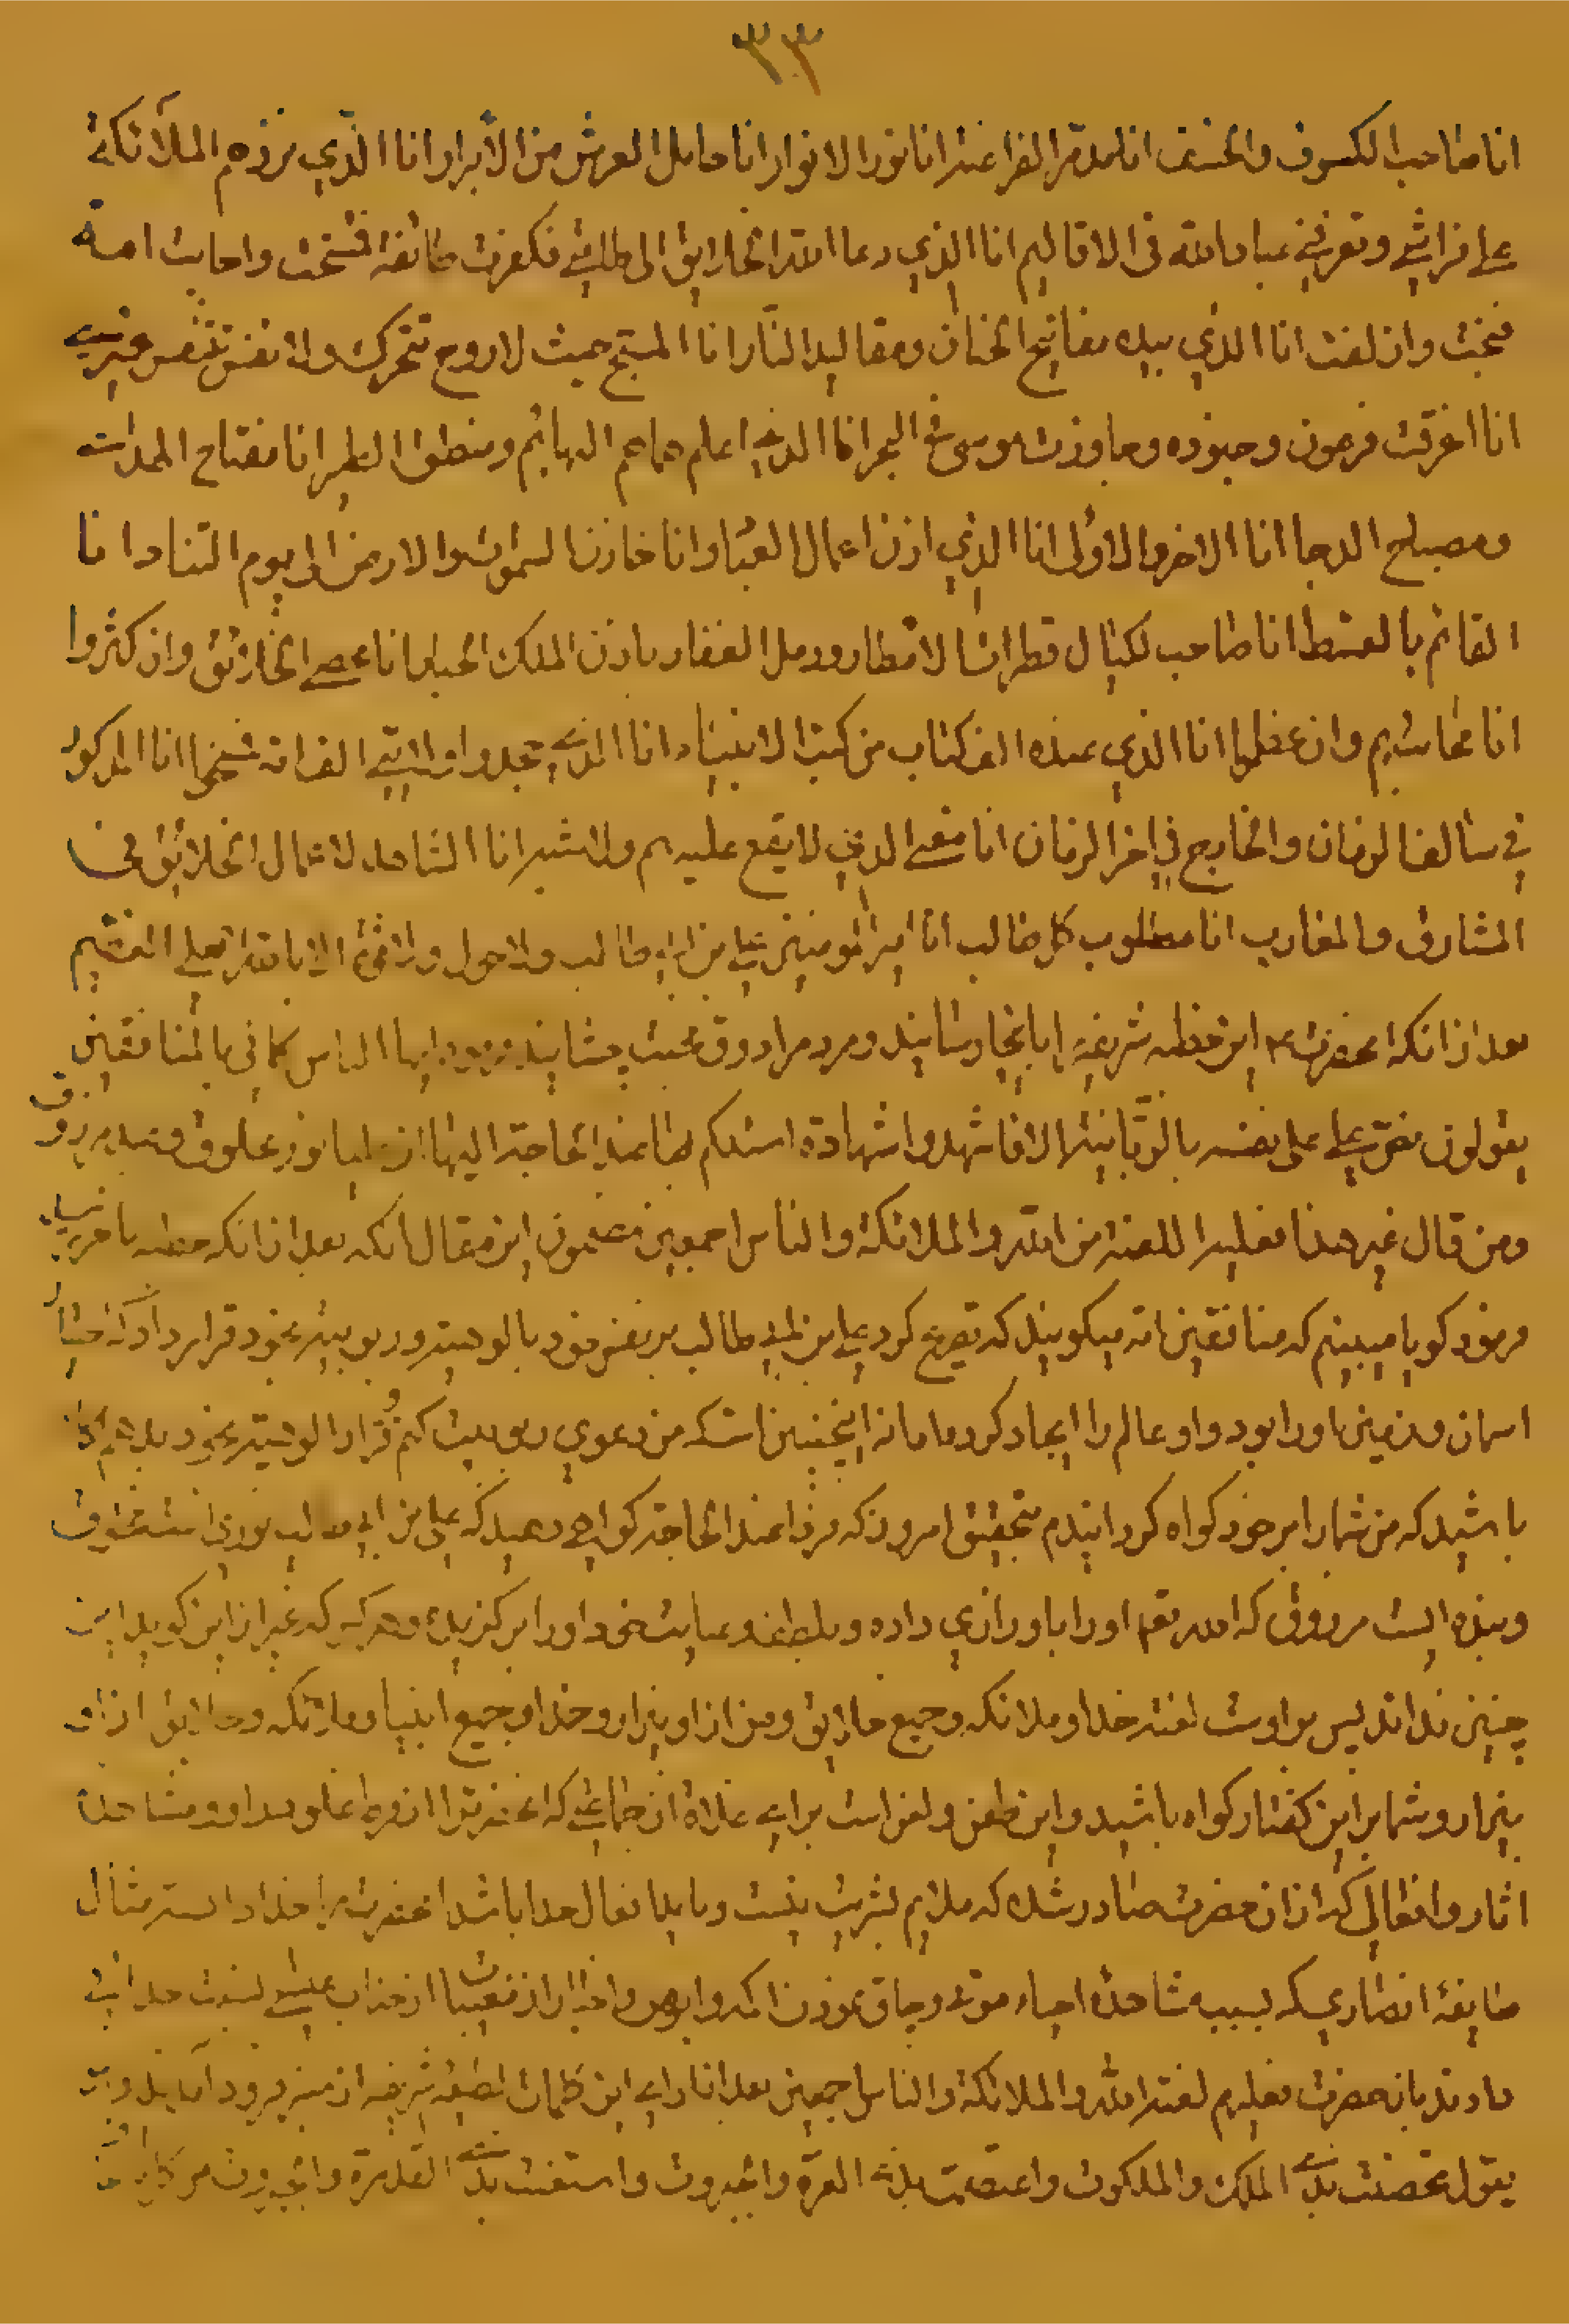 ٣٣
انا صاحب الكسوف والخسف انا مدمّر الفراعنة انا نور الانوار انا حامل العرش من الأبرار انا الّذي تزوره الملآئكة
على فراشي وتعرفني عباد الله في الاقاليم انا الذي دعا الله الخلايق الى طاعتي فكفرت طائفة فمسخت واجابت امة
فنجت وازلفت انا الذي بيده مفاتيح الجنان ومقاليد النّار انا المسبّح حيث لا روح تتحرك ولا نفس تتنفس غيري
انا اغرقت فرعون وجنوده وجاوزت موسى في البحر انا الذي اعلم هماهم البهائم ومنطق الطير انا مفتاح الهدات
ومصباح الدجا انا الاخر والاولى انا الذي ازن اعمال العباد انا خازن السموات والارض الى يوم التناد انا
القائم بالقسط انا صاحب لكيال قطرات الامطار ورمل القفار باذن الملك الجبار انا محصي الخلائق وان كثروا
انا محاسبهم وان عظموا انا الذي عنده الف كتاب من كتب الانبياء انا الذي جحد ولايتي الف امة فمسخوا انا المذكور
في سالف الزمان والخارج في اخر الزمان انا معنى الذي لا يقع عليه اسم ولا شبه انا الشاهد لاعمال الخلائق في
المشارق والمغارب انا مطلوب كل طالب انا امير المؤمنين علي بن ابي طالب ولا حول ولا قوّة الا بالله العلي العظيم
بعد از انكه انحضرت ع اين خطبه شريفه را بانجا رسانيد ومردم را ذوق محبت چشانيد فرمود ايها الناس كاني بالمنافقين
يقولون نصّ علي على نفسه بالربّانية الا فاشهدوا شهادة اسئلكم بها عند الحاجة اليها ان عليا نور مخلوق وعبد مرزوق
ومن قال غير هذا فعليه اللعنة من الله والملائكة والناس اجمعين مضمون اين مقال انكه بعد از انكه خطبه باخر رسيد
فرمود كويا ميبينم كه منافقين امّه ميكويند كه تصريح كرد علي بن ابي طالب بر نفس خود بالوهيت وربوبيت بخود قرار داد كه خدا
اسمان وزمين او را بود واو عالم را ايجاد كرده اما نه اينچنين است كه من دعوي ربوبيت كنم و قرار الوهيت بخود بدهم
باشيد كه من شما را بر خود كواه كردانيدم بتحقيق امروز كه فردا عند الحاجة كواهي دهيد كه علي بن ابي طالب نوريست مخلوق
وبنده ايست مرزوق كه الله تعالى او را باو روزي داده وبلطف وعنايت خود او را بركزيده وهر كه غير از اين كويد اين
چنين نداند پس بر اوست لعنت خدا وملائكه وجميع خلايق ومن از او بيزار وخدا وجميع انبيا وملائكه وخلايق از او
بيزار وشما بر اين كفتار كواه باشيد واين طعن ولعن است براي غلاة از جماعتي كه انحضرت را از فرط غلو بسبب مشاهدة
اثار وافعالي كه از انحضرت صادر شده كه ملايم بشريت نيست وبايد افعال خدا باشد انحضرت را خدا دانسته مثال
طايفۀ انصاري كه بسبب مشاهدۀ احياء موتى وچاق نمودن اكمه وابرص واخبار از مغيبات از جناب عيسى نسبت خدائي
دادند بانحضرت فعليهم لعنة الله والملائكة والناس اجمعين بعد از اداي اين كلمات لطيفۀ شريفه از منبر فرود آمدند و
يقول تحصنت بذي الملك والملكوت واعتصمت بذي العزة والجبروت واستعنت بذي القدرة والجبروت من كل